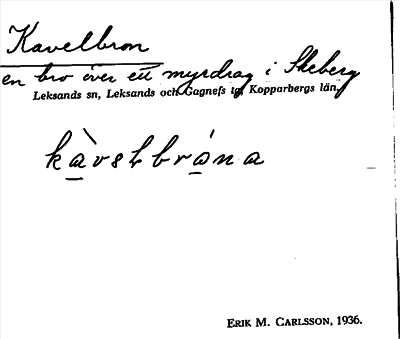 Kavelbron
en bro över ett myrdrag i Skeberg
Leksands sn, Leksands och Gagnefs tg, Kopparbergs län.
ERIK M. CARLSSON, 1936.